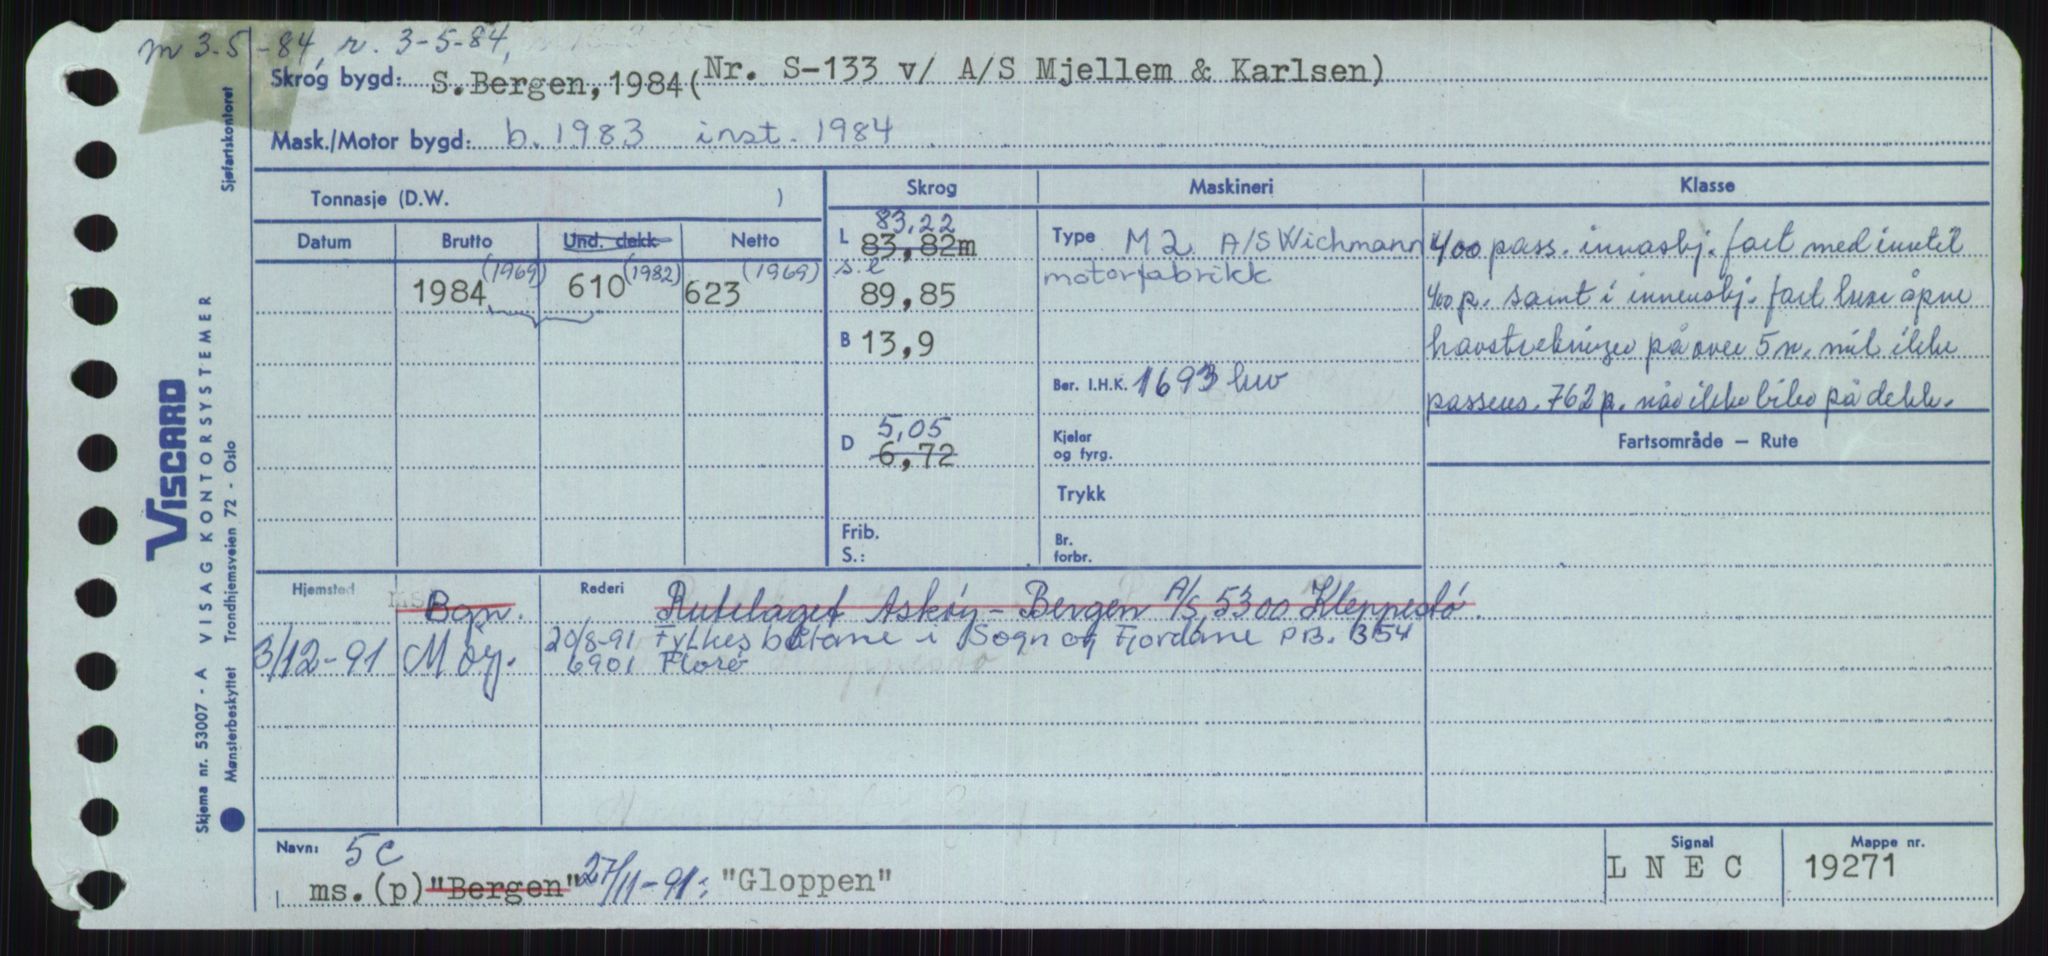 m 3-5-84, r. 3-5-84,
Skrog bygd: S.Bergen, 1984 (Nr. S-133 v/ A/S Mjellem & Karlsen)
Mask./Motor bygd: b. 1983 inst. 1984
Tonnasje (D.W. )
Skrog
Maskineri
Klasse
Datum
Brutto
Und. dekk
Netto
1984 (1969)
610 (1982)
623 (1969)
L 83,22
83,82m
s.l
89,85
B 13,9
5,05
D 6,72
Frib.
S.:
Type M 2 A/S Wichmann
motorfabrikk
Ber. I.H.K. 1693 kw
Kjeler
og fyrg.
Trykk
Br.
forbr.
400 pass. innasbj. fart med inntil
400 p. samt i innenskj. fart hvor åpne
havstrekninger på over 5 n. mil ikke
passeres. 762 p. når ikke biler på dekk.
Fartsområde – Rute
Hjemsted
Rederi
ms
Bgn.
Rutelaget Askøy - Bergen A/S 5300 Kleppestø
3/12-91 Möy.
20/8-91 Fylkesbåtane i Sogn og Fjordane P.B. 354
6901 Florø
Navn: 5c
ms.(p) "Bergen" 27/11-91: "Gloppen"
Signal
L N E C
Mappe nr.
19271
VISCARD
Skjema nr. 53007 - A VISAG KONTORSYSTEMER
Mønsterbeskyttet Trondhjemsveien 72 - Oslo
Sjøfartskontoret